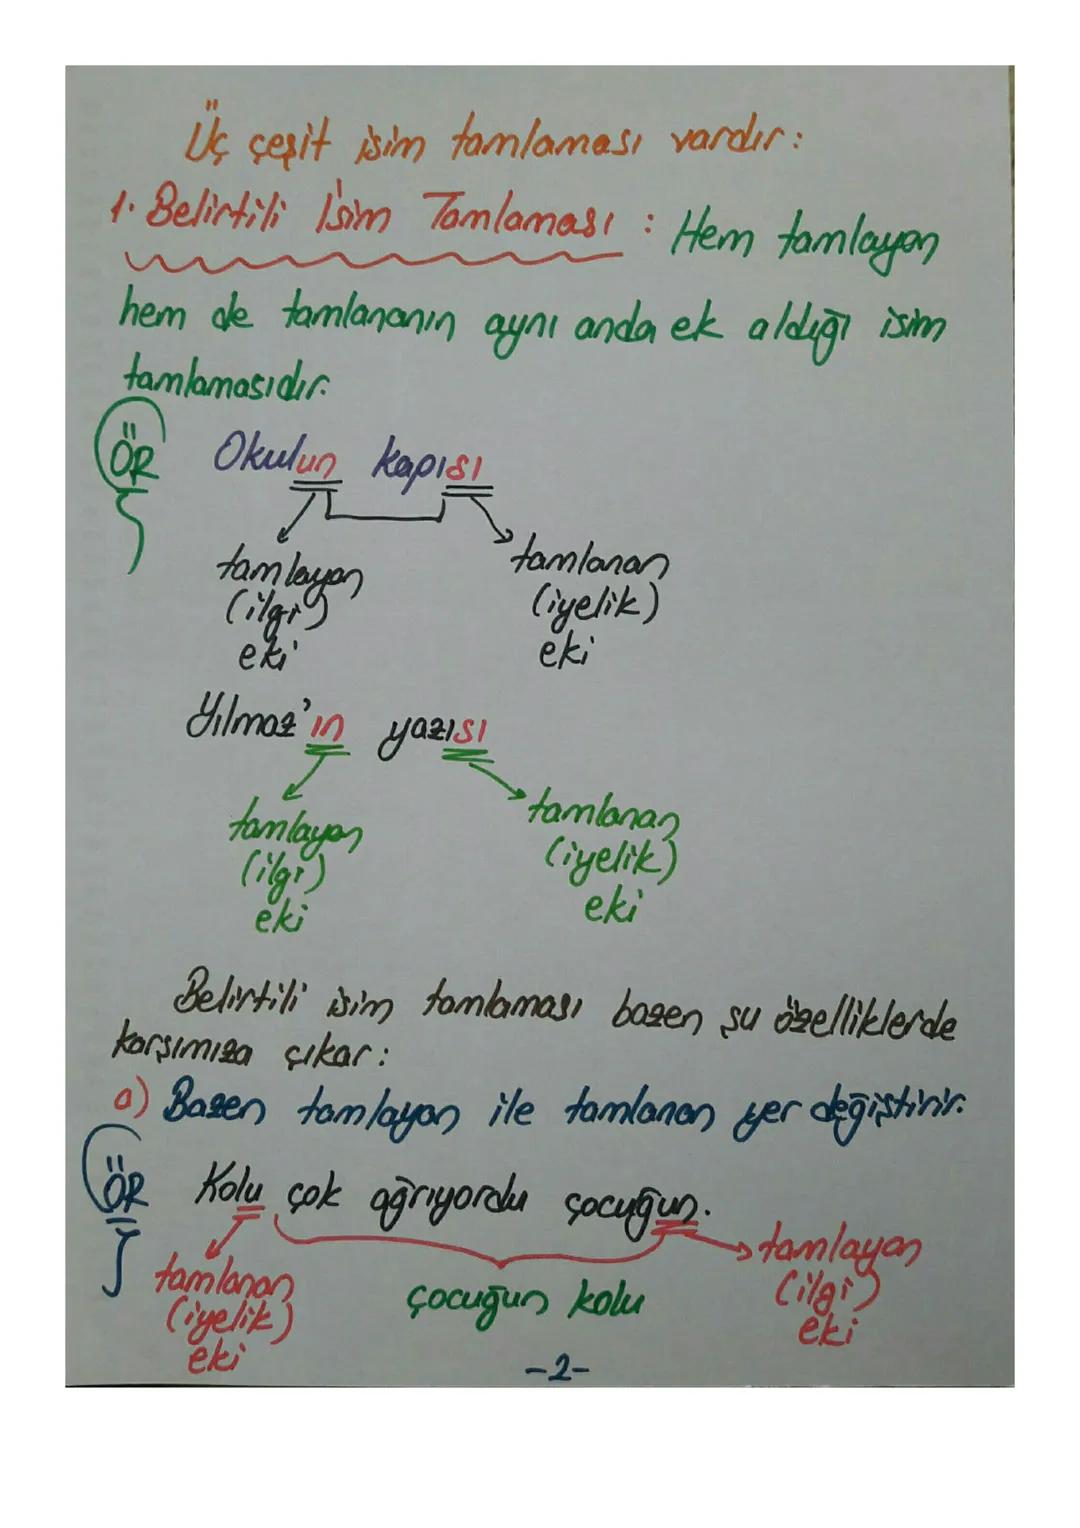 Üç çeşit isim tamlaması vardır:
1. Belirtili İsim Tamlaması : Hem tamlayan
hem de tamlananın aynı anda ek aldığı isim
tamlamasıdır.
ÖR Okulun kapısı
tamlayan tamlanan
(ilgi) (iyelik)
eki eki
Yılmaz'ın yazısı
tamlayan tamlanan
(ilgi) (iyelik)
eki eki
Belirtili isim tamlaması bazen şu özelliklerde
karşımıza çıkar:
a) Bazen tamlayan ile tamlanan yer değiştirir.
ÖR Kolu çok ağrıyordu çocuğun.
tamlanan çocuğun kolu tamlayan
(iyelik) (ilgi)
eki eki
-2-